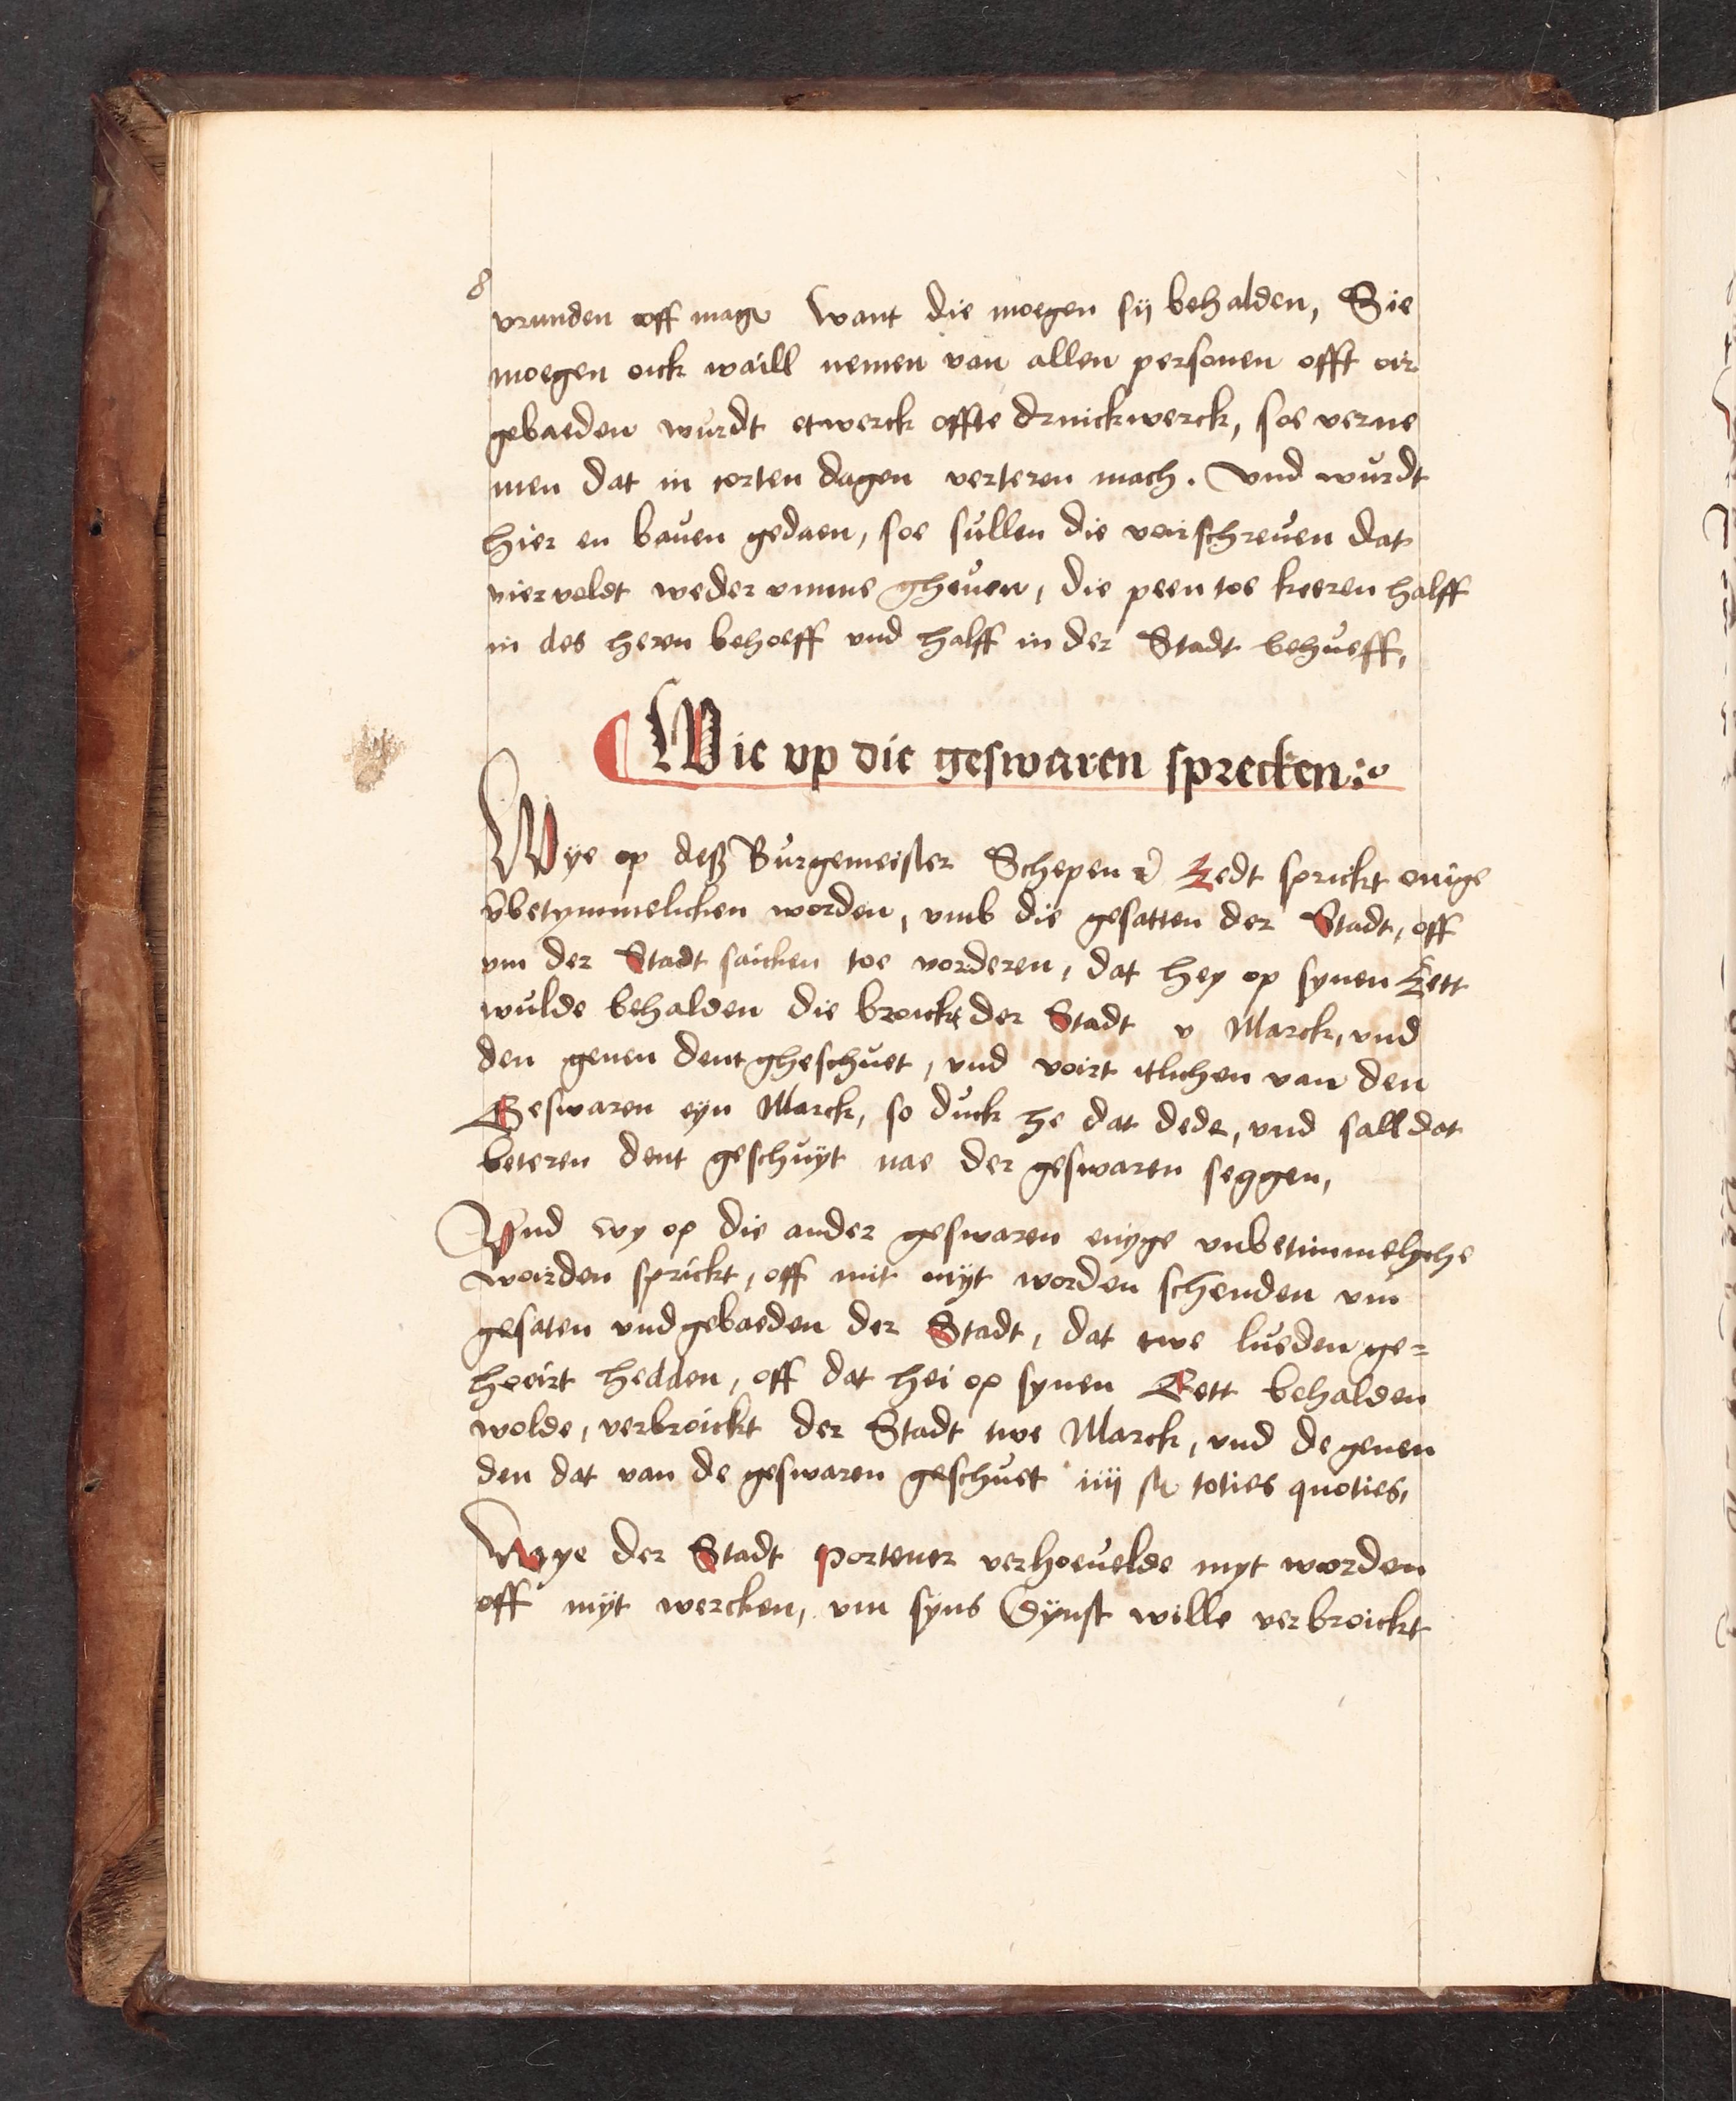 8
vrunden off mage want die moegen sij behalden, Sie
moegen oick waill nemen van allen personen offt oir
gebaeden wurdt etwerck offte drinckwerck, soe verne
men dat in corten dagen verteren mach. Vnd wurdt
hier en bauen gedaen, soe sullen die vorschreuen dat
viervoldt weder vmme gheuen, die peen toe keeren halff
in des heren behoeff vnd halff in der Stadt behueff,
Wie vp die geswaren sprecken:
Wye op deß Burgemeister Schepen Eedt sprickt enige
vbetymmelicken worden, vmb die gesatten der Stadt, off
vm der Stadt saicken toe vorderen, dat hey op synen Eett
wulde behalden die broickt der Stadt v Marck, vnd
den genen dent gheschuet, vnd voirt itlichen van den
Geswaren eyn Marck, so duck he dat dede, vnd sall dat
beteren dent geschuyt nae der geswaren seggen,
Vnd wy op die ander geswaren enyge vnbetimmelyche
woirden sprickt, off mit nijt worden schenden vm
gesaten vnd gebaeden der Stadt, dat twe lueden ge-
hoeirt hedden, off dat hei op synen Eett behalden
wolde, verbroickt der Stadt twe Marck, vnd de genen
den dat van de geswaren geschuet iiij toties quoties,
Wye der Stadt Portener verhoeuelde myt worden
off mÿt wercken, vm syns Dÿnst wille verbroickt